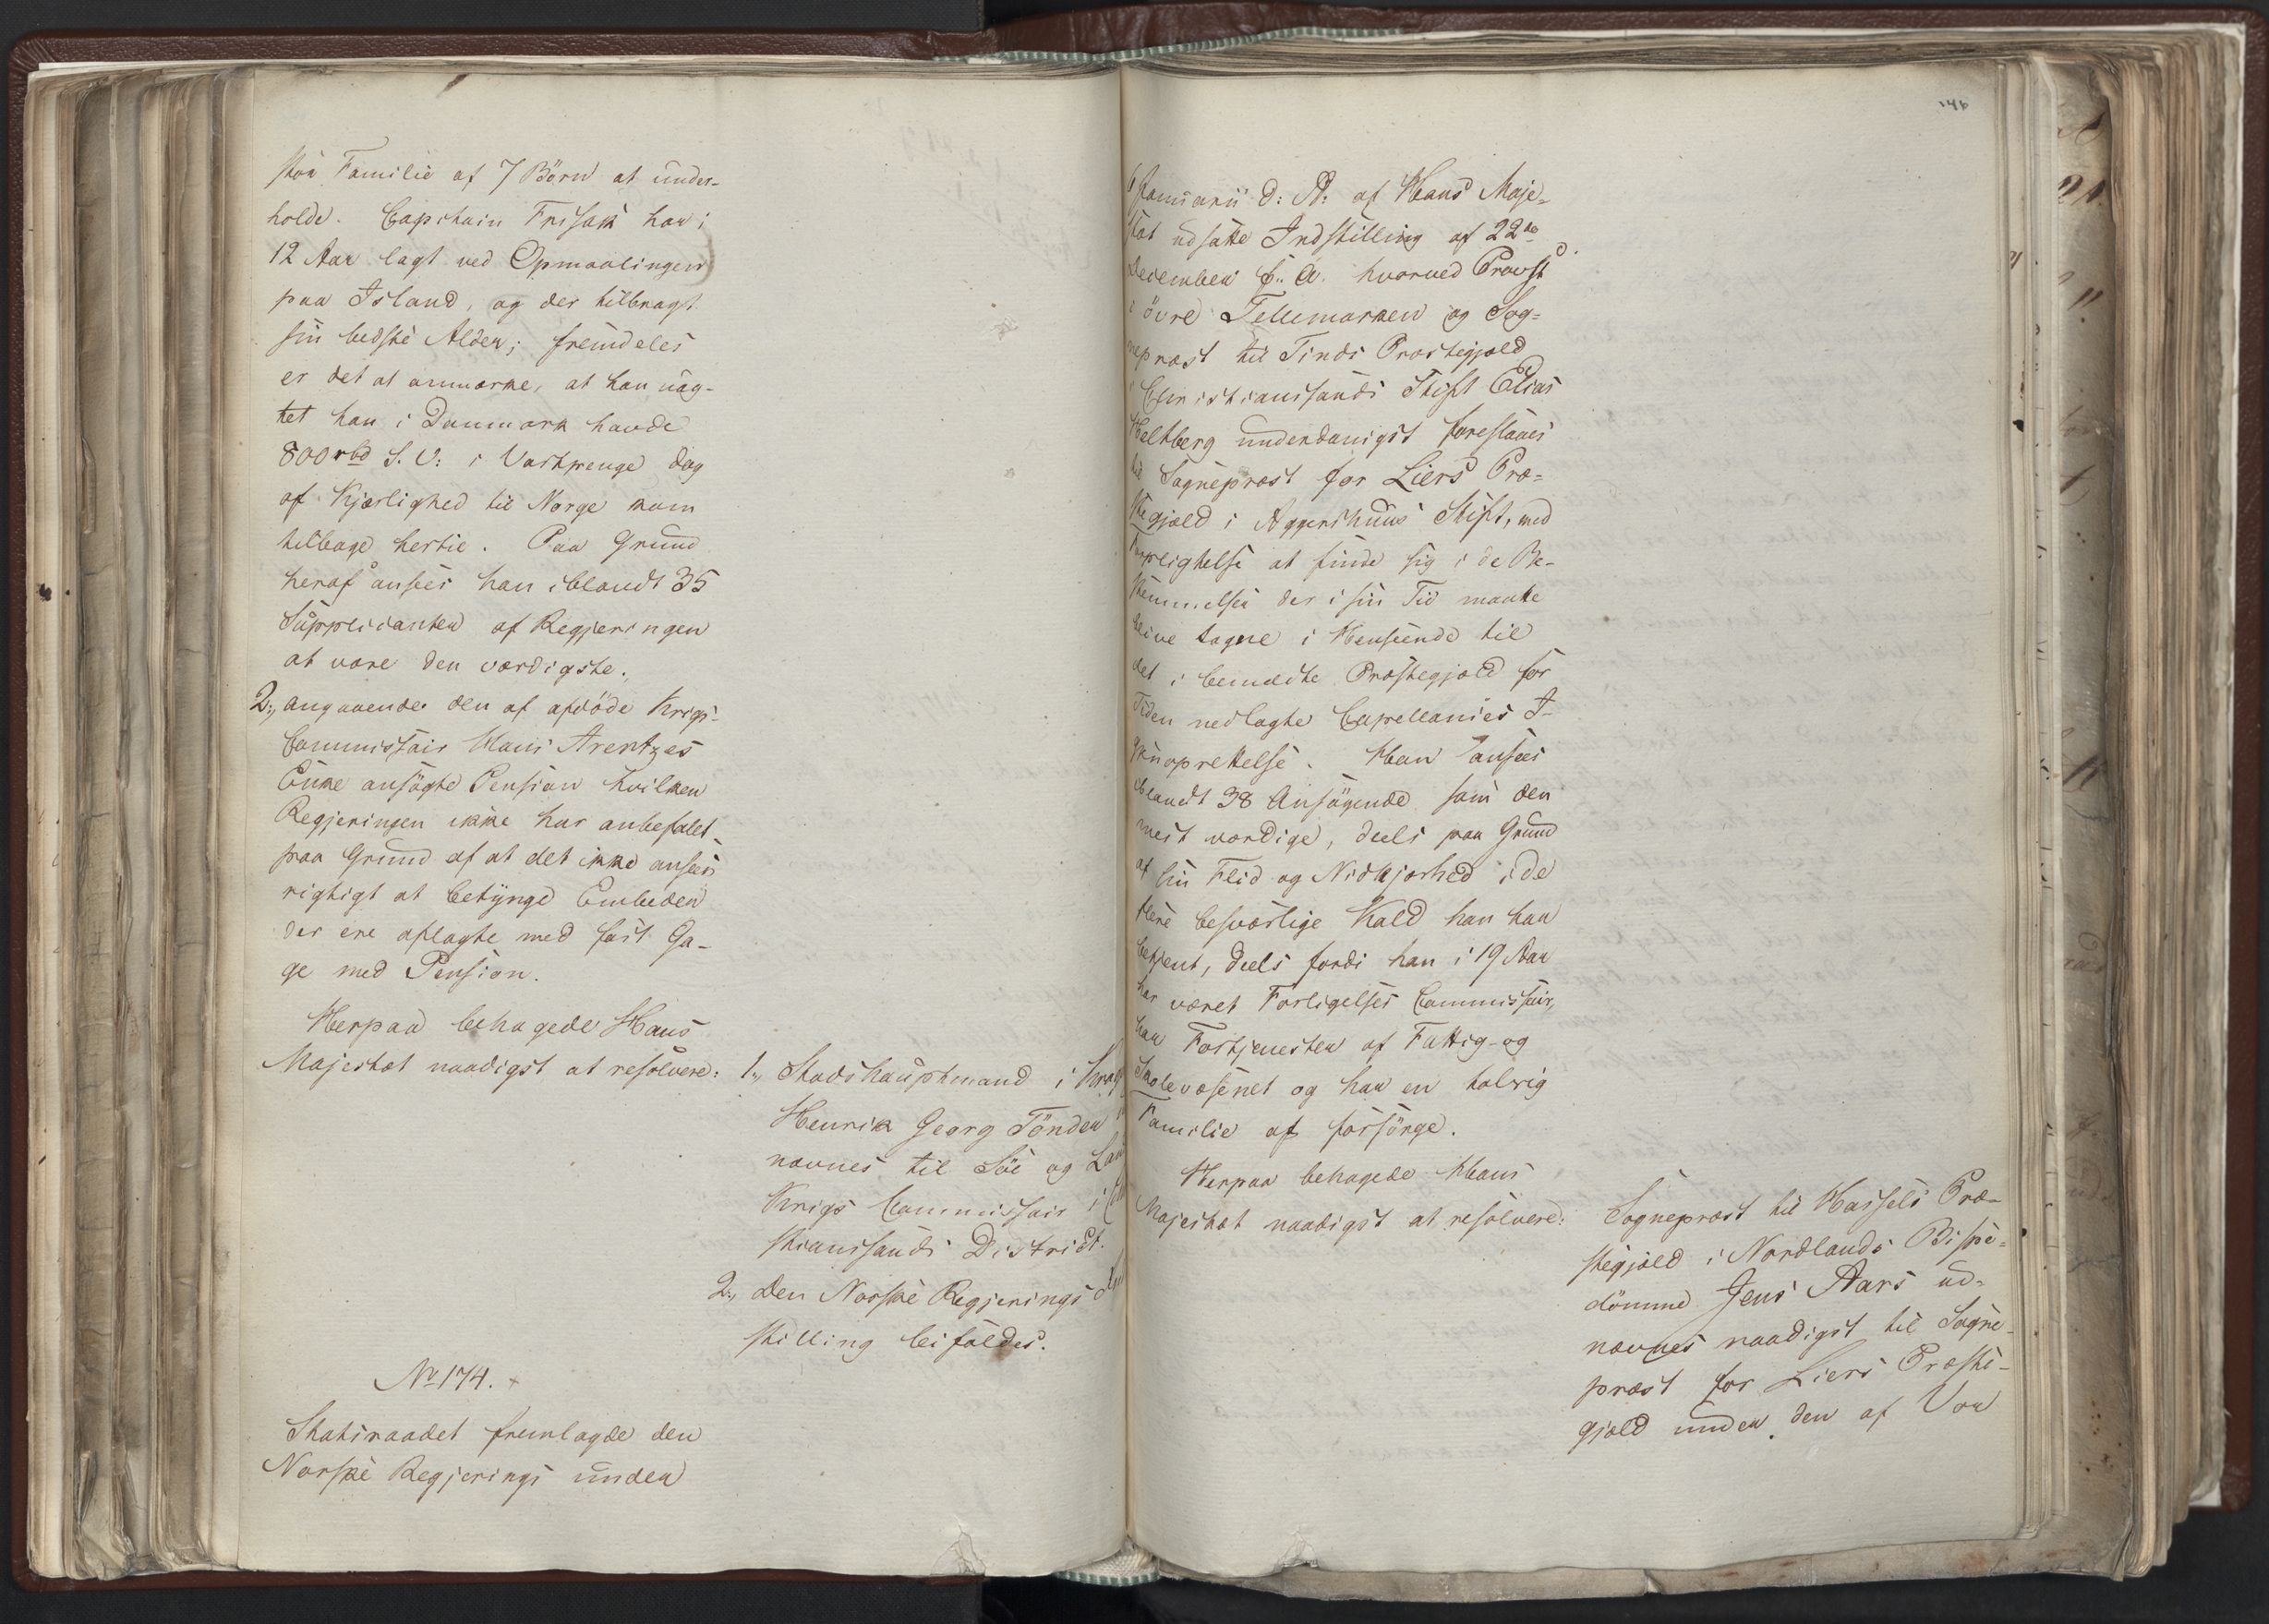 stor Familie af 7 Börn at under-
holde. Capitain Frisak har i
12 Aar lagt ved Opmaalingen
paa Island, og der tilbragt
sin bedste Alder; fremdeles
er det at anmærke, at han uag-
tet han i Danmark havde
800 rbd S. V: i Vartpenge dog
af Kjærlighed til Norge kom
tilbage hertil. Paa Grund
heraf ansees han iblandt 35
Supplicanter af Regjeringen
at være den værdigste.
2., angaaende den af afdöde Krigs-
Commissair Hans Arentzes
Enke ansögte Pension hvilken
Regjeringen ikke har anbefalet
paa Grund af at det ikke ansees
rigtigt at betynge Embeder
der ere aflagte med fast Ga-
ge med Pension.
Herpaa behagede Hans
Majestæt naadigst at resolvere:
1., Stadshauptmand i Krag
Henrik Georg Tönder
nævnes til Söe og Lan
Krigs Commissair i
stianssands District.
2., Den Norske Regjerings
stilling bifaldes.
No 174.
Statsraadet fremlagde den
Norske Regjerings under
146
6 Januarii d: A: af Hans Maje-
stæt udsatte Indstilling af 22de
December f: A. hvorved Provst
i övre Tellemarken og Sog-
nepræst til Tinds Præstegjæld
i Christianssands Stift Elias
Heltberg underdanigst foreslaaes
til Sognepræst for Liers Præ-
stegjæld i Aggershuus Stift, med
Forpligtelse at finde sig i de Be-
stemmelser der i sin Tid maatte
blive tagne i Henseende til
det i bemeldte Præstegjæld for
Tiden nedlagte Capellanies I-
genoprettelse. Han ansees
iblandt 38 Ansögende som den
mest værdige, deels paa Grund
af sin Flid og Nidkjærhed i de
flere besværlige Kald han har
betjent, deels fordi han i 19 Aar
har været Forligelses Commissair,
har Fortjenester af Fattig- og
Skolevæsenet og har en talrig
Familie at forsörge.
Herpaa behagede Hans
Majestæt naadigst at resolvere:
Sognepræst til Hassels Præ-
stegjæld i Nordlands Bispe-
dömme Jens Aars ud-
nævnes naadigst til Sogne-
præst for Liers Præste-
gjæld under den af Vor